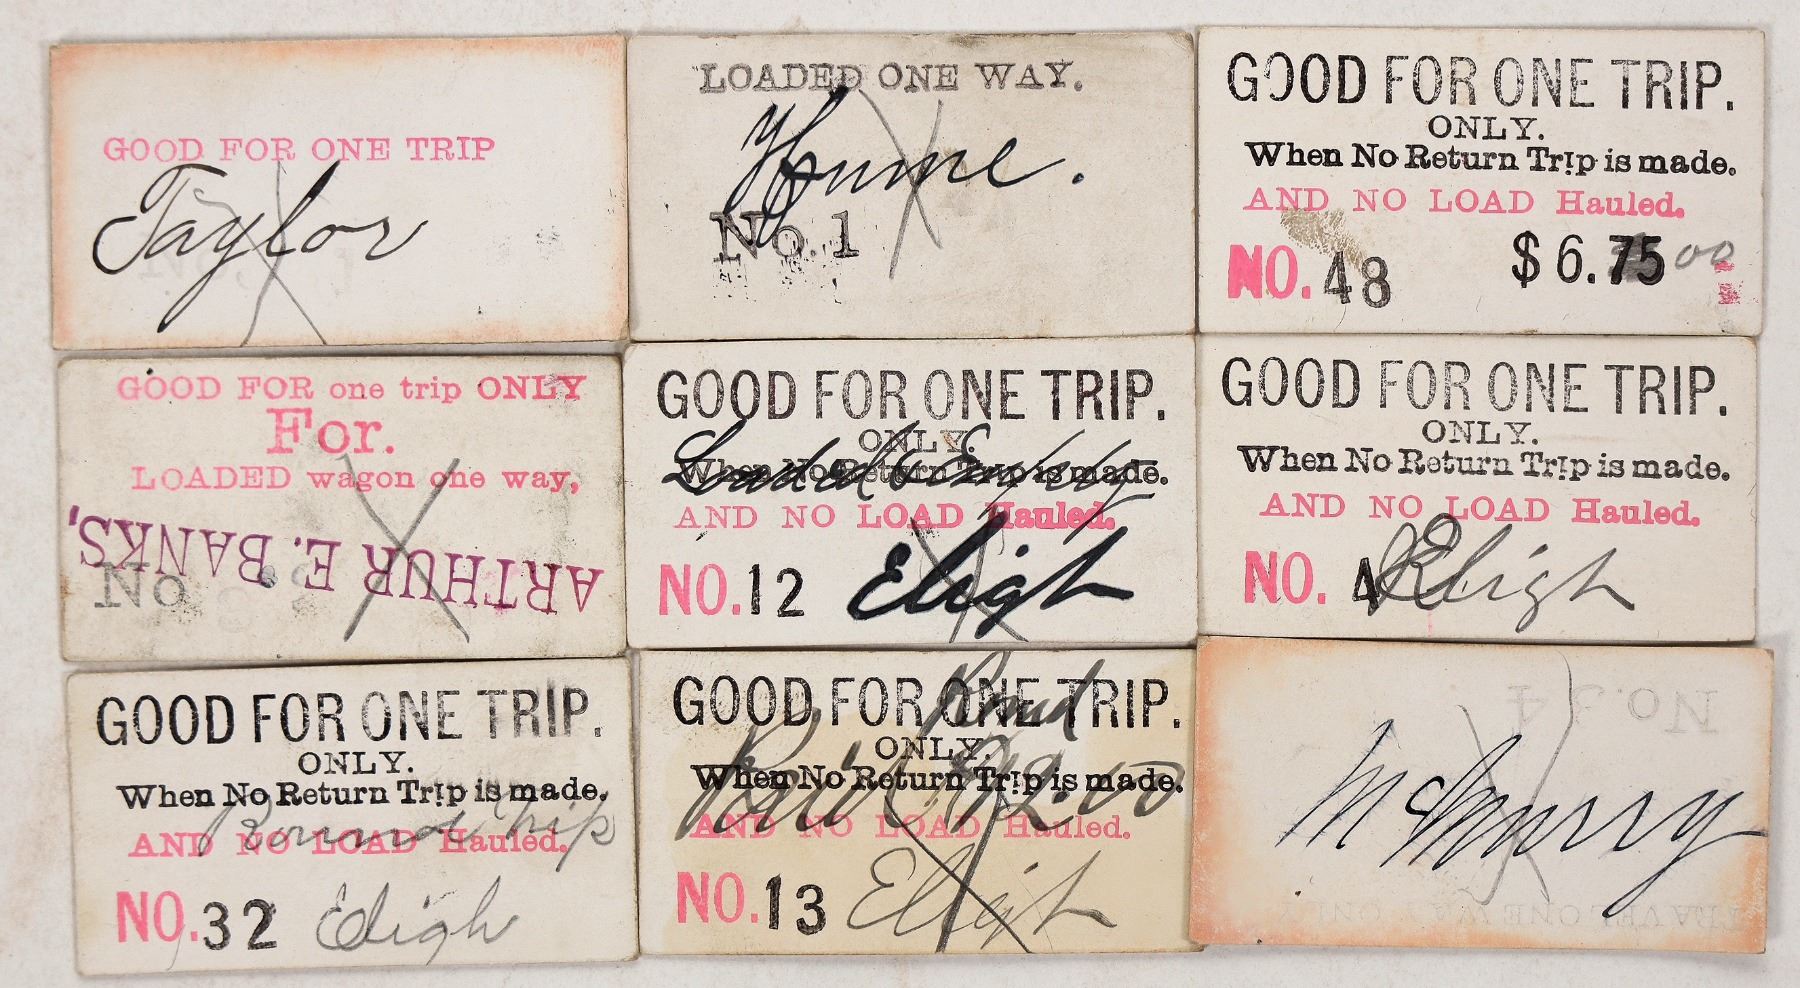 GOOD FOR ONE TRIP
Taylor
LOADED ONE WAY.
Hume.
No. 1
GOOD FOR ONE TRIP.
ONLY.
When No Return Trip is made.
AND NO LOAD Hauled.
NO. 48 $6.75 00
GOOD FOR one trip ONLY
For.
LOADED wagon one way,
ARTHUR E. BANKS,
No
GOOD FOR ONE TRIP.
ONLY.
Loaded & Empty
When No Return Trip is made.
AND NO LOAD Hauled.
NO. 12 Eligh
GOOD FOR ONE TRIP.
ONLY.
When No Return Trip is made.
AND NO LOAD Hauled.
NO. 4 Eligh
GOOD FOR ONE TRIP.
ONLY.
When No Return Trip is made.
Round Trip
AND NO LOAD Hauled.
NO. 32 Eligh
GOOD FOR ONE TRIP.
ONLY.
When No Return Trip is made.
Paid $12.00
AND NO LOAD Hauled.
NO. 13 Eligh
McMurry